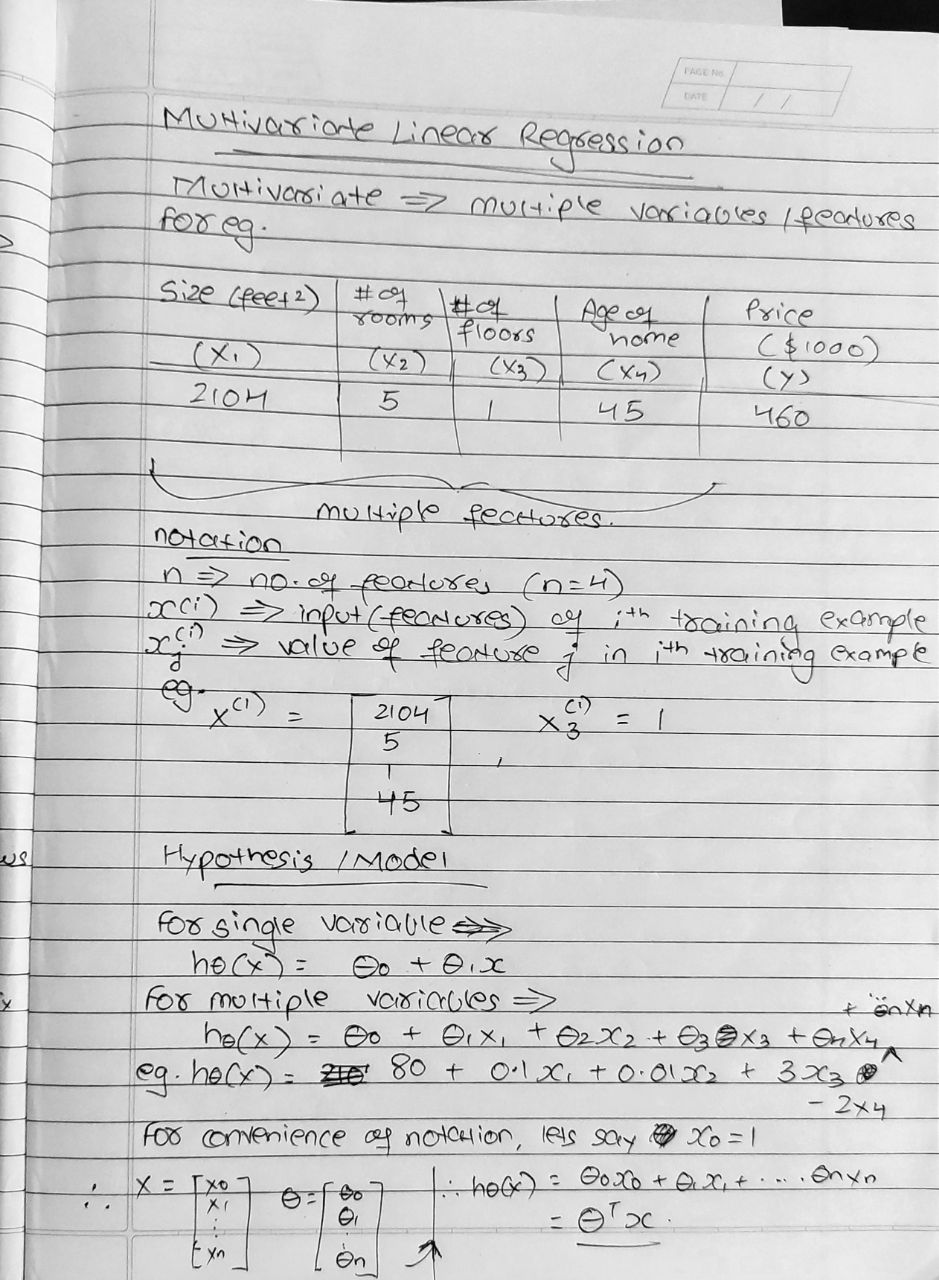 PAGE No.
DATE / /
Multivariate Linear Regression
Multivariate => multiple variables / features
for eg.
Size (feet2) | # of rooms | # of floors | Age of home | Price ($1000)
(x1) | (x2) | (x3) | (x4) | (y)
2104 | 5 | 1 | 45 | 460
multiple features.
notation
n => no. of features (n=4)
x(i) => input (features) of ith training example
xj(i) => value of feature j in ith training example
eg. x(1) = [2104 5 1 45] , x3(1) = 1
us
Hypothesis / Model
for single variable =>
hθ(x) = θ0 + θ1x
for multiple variables =>
hθ(x) = θ0 + θ1x1 + θ2x2 + θ3x3 + θnx4 + ..θnxn
eg. hθ(x) = 80 + 0.1x1 + 0.01x2 + 3x3 - 2x4
For convenience of notation, lets say x0 = 1
∴ X = [x0 x1 : xn] θ = [θ0 θ1 : θn] ∴ hθ(x) = θ0x0 + θ1x1 + .... θnxn
= θTx.